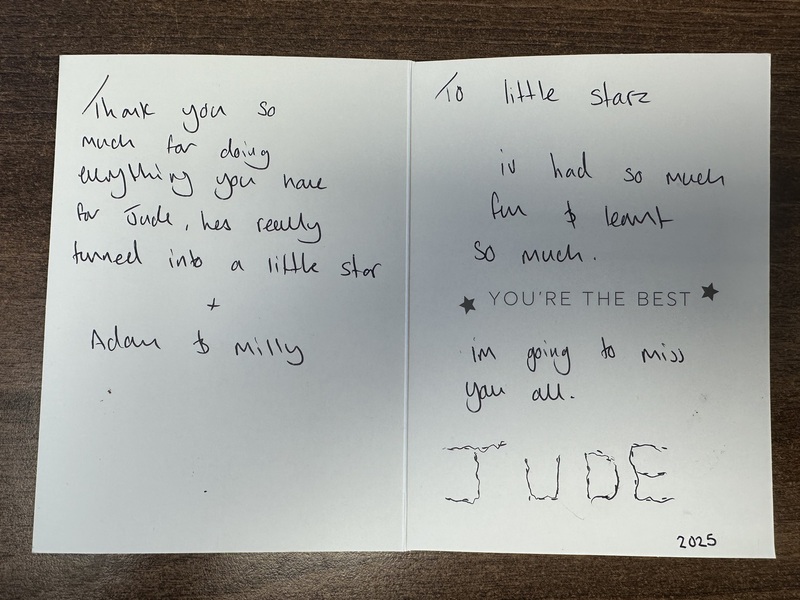 Thank you so
much for doing
everything you have
for Jude, hes really
turned into a little star
+
Adam & Milly
To little starz
iv had so much
fun & learnt
so much.
★ YOU'RE THE BEST ★
im going to miss
you all.
JUDE
2025